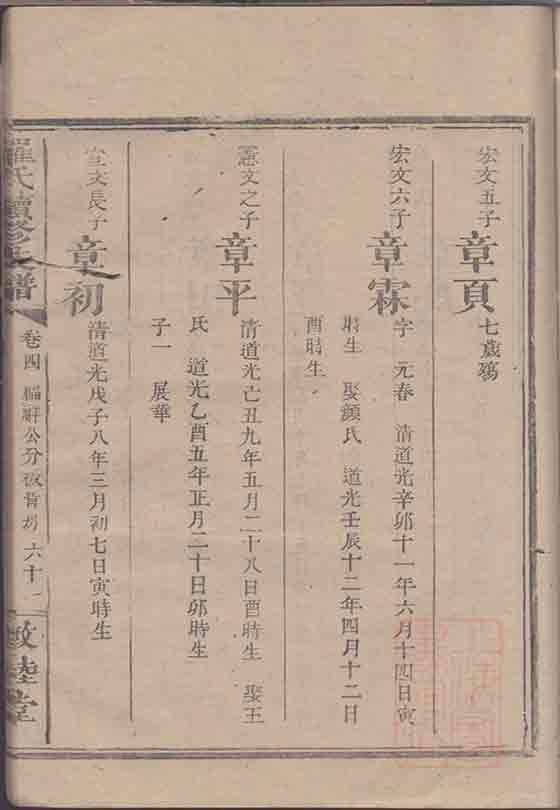 宏文五子
章頁
七歲殤
宏文六子
章霖
字 元春 清道光辛卯十一年六月十四日寅
時生 娶顏氏 道光壬辰十二年四月十二日
酉時生
憲文之子
章平
清道光己丑九年五月二十八日酉時生 娶王
氏 道光乙酉五年正月二十日卯時生
子一 展華
文長子
章初
清道光戊子八年三月初七日寅時生
羅氏續修族譜
卷四
公分 六十一
敦睦堂